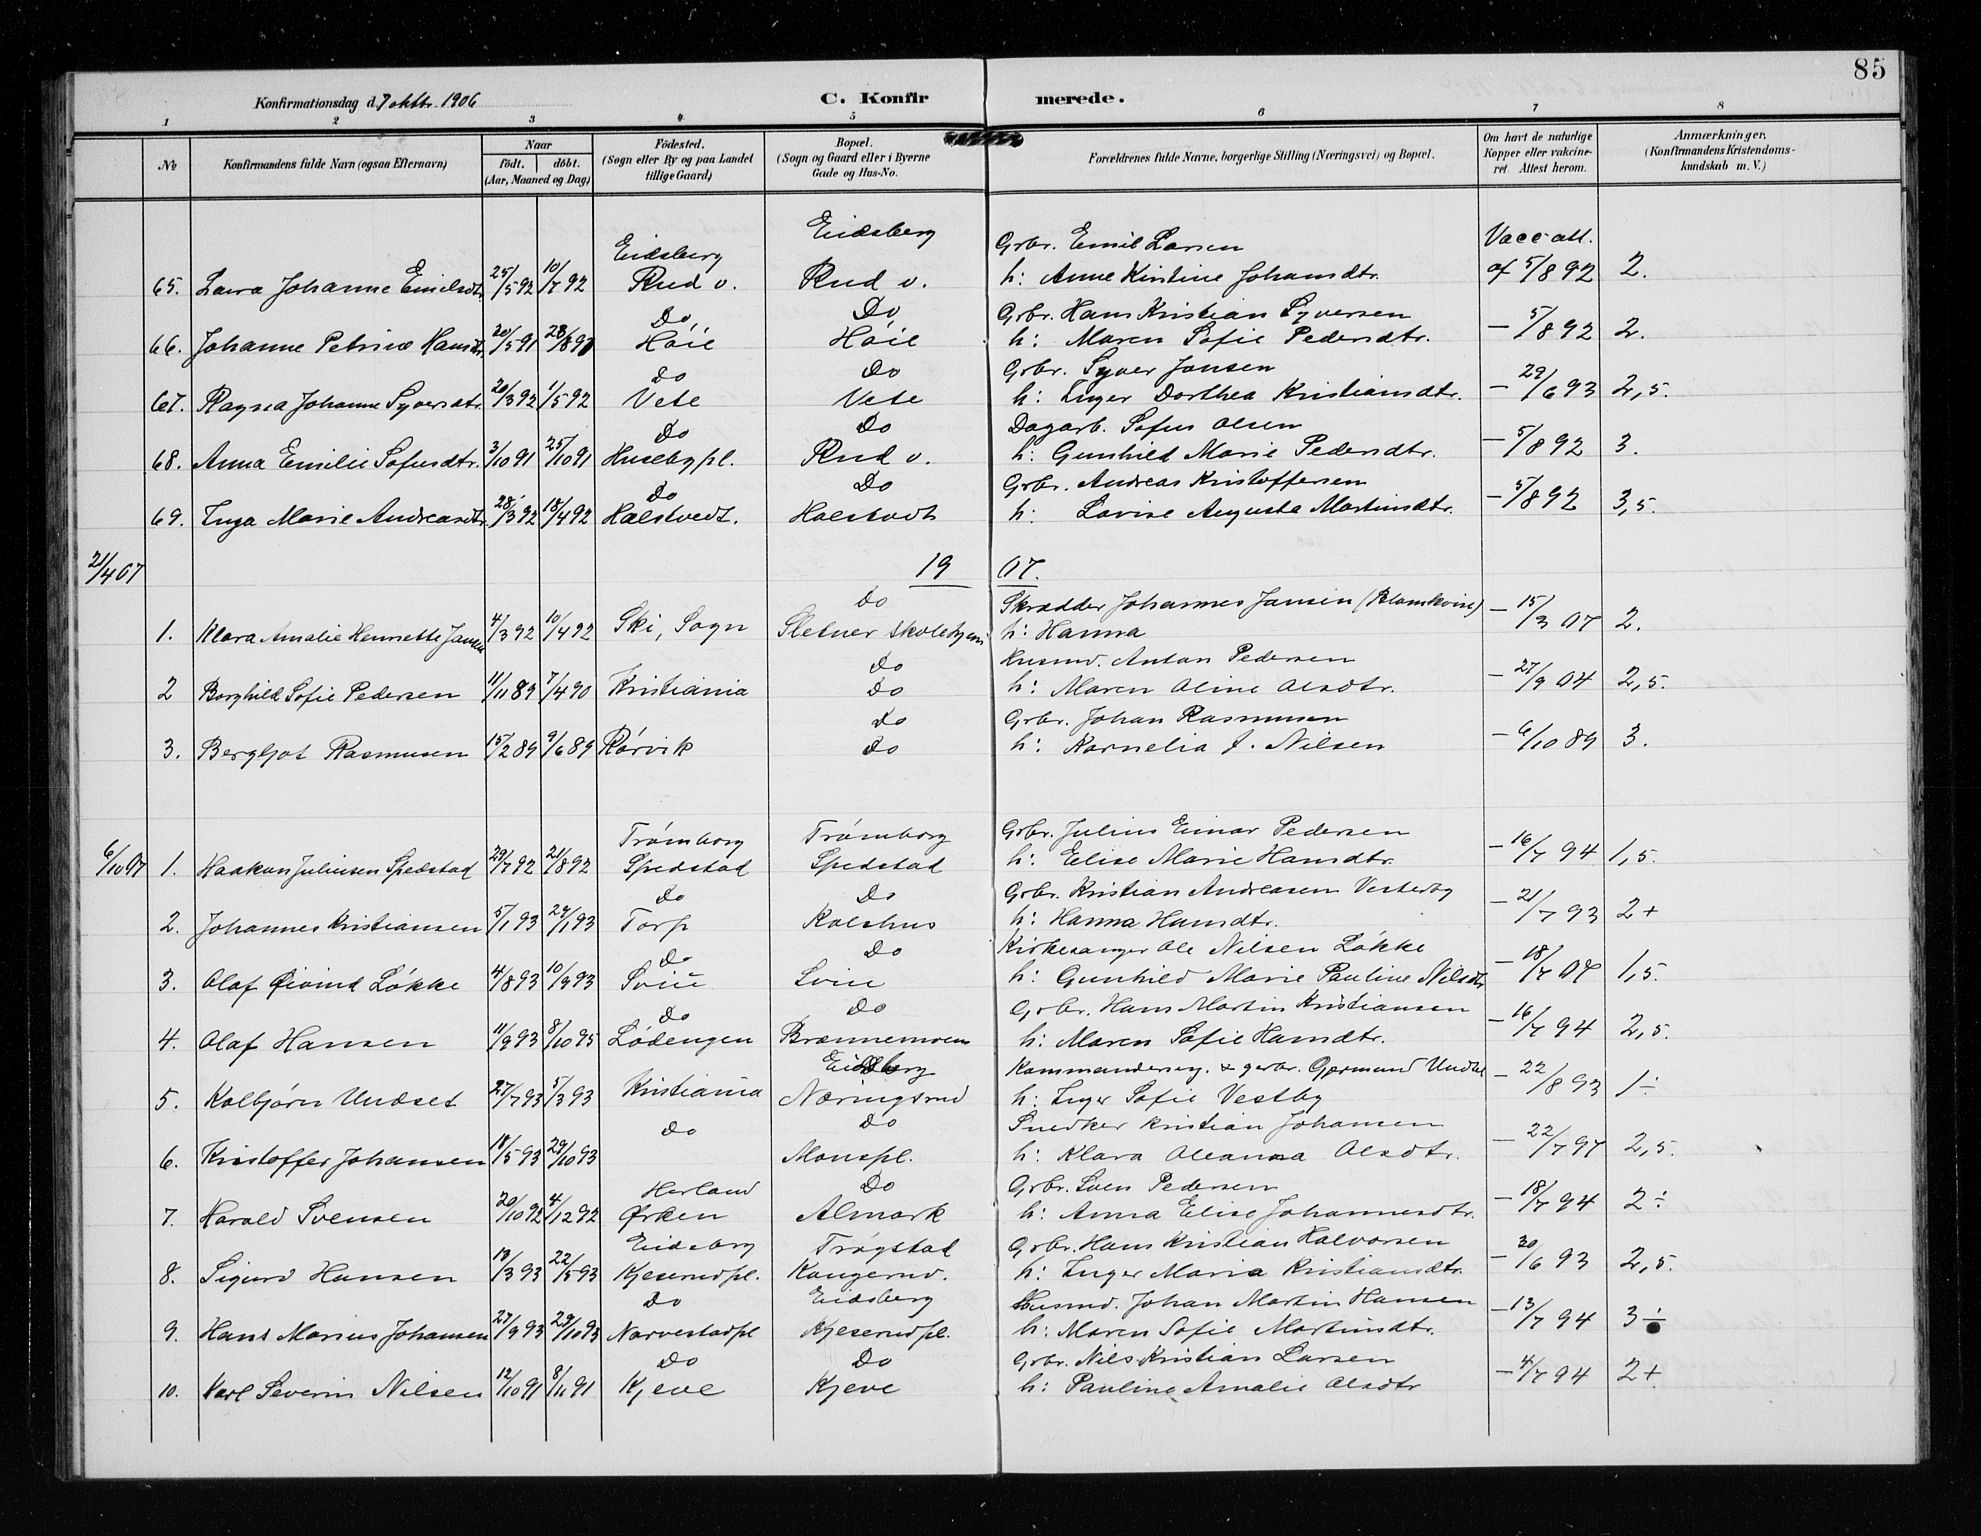 85
Konfirmationsdag d. 7 oktbr. 1906
C. Konfirmerede.
1 2 3 4 5 6 7 8
No
Konfirmandens fulde Navn (ogsaa Efternavn)
Naar
födt. döbt.
(Aar, Maaned og Dag)
Födested.
(Sogn eller By og paa Landet
tillige Gaard)
Bopæl.
(Sogn og Gaard eller i Byerne
Gade og Hus-No.
Forældrenes fulde Navne, borgerlige Stilling (Næringsvei) og Bopæl.
Om havt de naturlige
Kopper eller vakcine-
ret Attest herom.
Anmærkninger.
(Konfirmandens Kristendoms-
kundskab m. V.)
Eidsberg Eidsberg Grbr. Emil Larsen Vacc-att.
65. Laura Johanne Emilsdtr. 25/5 92 10/7 92 Rud v. Rud v. h: Anne Kirstine Johansdtr. af 5/8 92 2.
Do Do Grbr. Hans Kristian Syversen
66. Johanne Petrine Hansdtr 20/5 91 28/8 91 Høie Høie h: Maren Sofie Pedersdtr. — 5/8 92 2.
Do Do Grbr. Syver Jensen
67. Ragna Johanne Syversdtr. 20/3 92 1/5 92 Vete Vete h: Inger Dorthea Kristiansdtr. — 29/6 93 2,5.
Do Do Dagarb. Sofus Olsen
68. Anna Emilie Sofusdtr. 3/10 91 25/10 91 Husebypl. Rud v. h: Gunhild Marie Pedersdtr. — 5/8 92 3.
Do Do Grbr. Andreas Kristoffersen
69. Inga Marie Andreasdtr. 28/3 92 18/4 92 Halstvedt. Halstvedt h: Lovise Augusta Martinsdtr. — 5/8 92 3,5.
21/4 07 19 07.
Do Skrædder Johannes Jansen (Blomkvist)
1. Klara Amalie Henriette Jansen 4/3 92 10/4 92 Ski, Sogn Sletner skolehjem h: Hanna — 15/3 07 2.
Do Husmd. Anton Pedersen
2 Borghild Sofie Pedersen 11/11 89 7/4 90 Kristiania Do h: Maren Oline Olsdtr. — 27/9 04 2,5.
Do Grbr. Johan Rasmusen
3. Bergljot Rasmusen 15/2 89 9/6 89 Rørvik Do h: Kornelia J. Nilsen — 6/10 89 3.
Trømborg Trømborg Grbr. Julius Einar Pedersen
6/10 07 1. Haakon Juliusen Spedstad 29/7 92 21/8 92 Spedstad Spedstad h: Elise Marie Hansdtr. — 16/7 94 1,5.
Do Do Grbr. Kristian Andreasen Vesterby
2. Johannes Kristiansen 5/1 93 29/1 93 Torp Kolshus h: Hanna Hansdtr. — 21/7 93 2+
Do Do Kirkesanger Ole Nilsen Løkke
3. Olaf Øivind Løkke 4/8 93 10/9 93 Svin Svin h: Gunhild Marie Pauline Nilsdtr — 18/7 07 1,5.
Do Do Grbr. Hans Martin Kristiansen
4. Olaf Hansen 11/9 93 8/10 95 Lødengen Brennemoen h: Maren Sofie Hansdtr. — 16/7 94 2,5.
Eidsberg Kommandersrg. & grbr. Gjermund Undset
5. Kolbjørn Undset 27/7 93 5/3 93 Kristiania Næringsrud h: Inger Sofie Vestby — 22/8 93 1÷
Do Do Snedker Kristian Johansen
6. Kristoffer Johansen 18/5 93 29/10 93 Monspl. h: Klara Oleanna Olsdtr. — 22/7 97 2,5.
Herland Do Grbr. Sven Pedersen
7. Harald Svensen 20/10 92 4/12 92 Ørken Almark h: Anna Elise Johannesdtr. — 18/7 94 2÷
Eidsberg Trøgstad Grbr. Hans Kristian Halvorsen
8. Sigurd Hansen 13/3 93 22/5 93 Kjeserudpl. Kongerud. h: Inger Maria Kristiansdtr. — 30/6 93 2,5.
Do Eidsberg Husmd. Johan Martin Hansen
9. Hans Marius Johansen 23/9 93 29/10 93 Narvestadpl Kjeserudpl. h: Maren Sofie Martinsdtr. — 13/7 94 3÷
Do Do Grbr. Nils Kristian Larsen
10. Karl Severin Nilsen 12/10 91 8/11 91 Kjeve Kjeve h: Pauline Amalie Olsdtr — 4/7 94 2+.